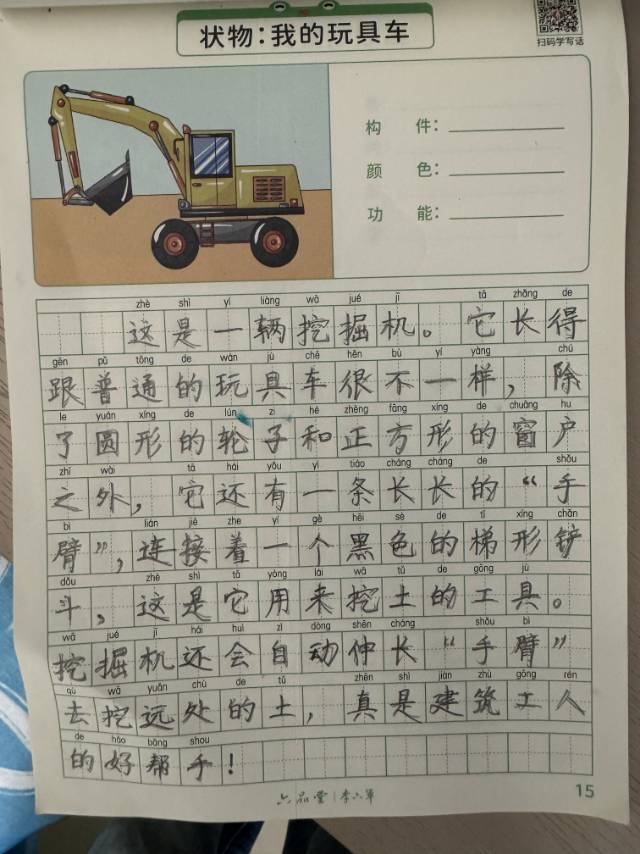 状物：我的玩具车
扫码学写话
构 件：
颜 色：
功 能：
zhè shì yí liàng wā jué jī tā zhǎng de
这是一辆挖掘机。它长得
gēn pǔ tōng de wán jù chē hěn bù yí yàng chú
跟普通的玩具车很不一样，除
le yuán xíng de lún zi hé zhèng fāng xíng de chuāng hu
了圆形的轮子和正方形的窗户
zhī wài tā hái yǒu yì tiáo cháng cháng de shǒu
之外，它还有一条长长的“手
bì lián jiē zhe yí gè hēi sè de tī xíng chǎn
臂”，连接着一个黑色的梯形铲
dǒu zhè shì tā yòng lái wā tǔ de gōng jù
斗，这是它用来挖土的工具。
wā jué jī hái huì zì dòng shēn cháng shǒu bì
挖掘机还会自动伸长“手臂”
qù wā yuǎn chù de tǔ zhēn shì jiàn zhù gōng rén
去挖远处的土，真是建筑工人
de hǎo bāng shou
的好帮手！
六品堂 | 李六军
15